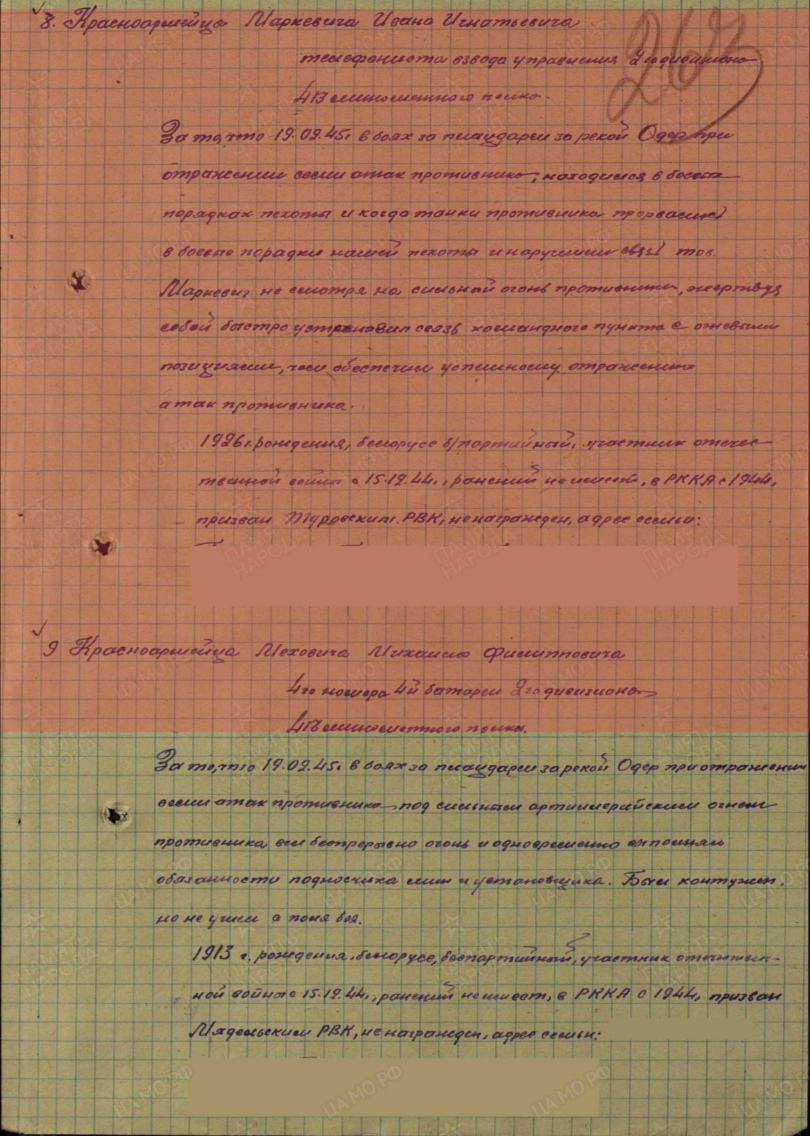 263
8. Красноармейца Маркевича Ивана Игнатьевича
телефониста взвода управления 2го дивизиона
413 минометного полка.
За то, что 19.02.45г. в боях за плацдарм за рекой Одер при
отражении семи атак противника, находился в боевых
порядках пехоты и когда танки противника прорвались
в боевые порядки нашей пехоты и нарушили связь тов.
Маркевич не смотря на сильный огонь противника, жертвуя
собой быстро установил связь командного пункта с огневыми
позициями, чем обеспечил успешному отражению
атак противника.
1926 г. рождения, белорусс б/партийный, участник отечес-
твенной войны с 15.12.44г., ранений не имеет, в РККА с 1944г,
призван Туровским РВК, не награжден, адрес семьи:
9 Красноармейца Меховича Михаила Филипповича
4го номера 4й батареи 2го дивизиона
413 минометного полка.
За то, что 19.02.45г. в боях за плацдарм за рекой Одер при отражении
семи атак противника под сильным артиллерийским огнем
противника вел беспрерывно огонь и одновременно выполнял
обязанности подносчика мин и установщика. Был контужен,
но не ушел с поля боя.
1913 г. рождения, белорусс, беспартийный, участник отечествен-
ной войны с 15.12.44г., ранений не имеет, в РККА с 1944г, призван
Мядельским РВК, не награжден, адрес семьи:
ЦАМО РФ